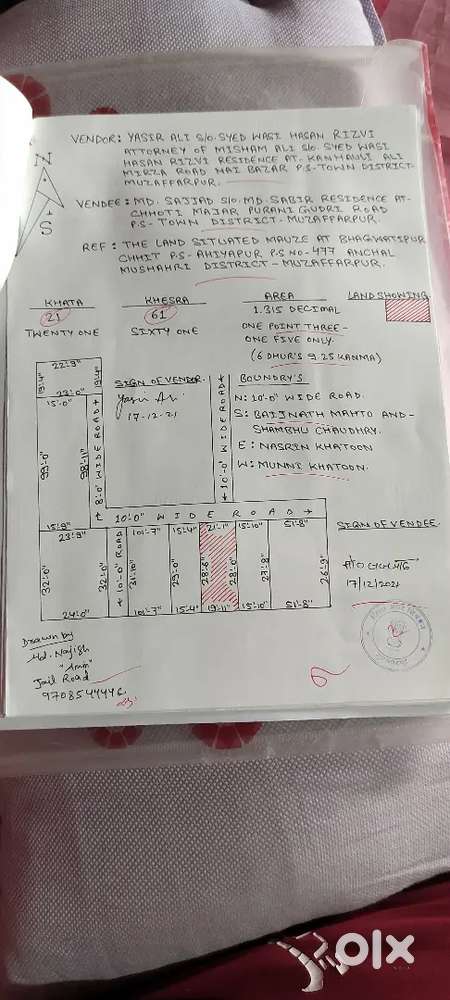 VENDOR: YASIR ALI S/O. SYED WASI HASAN RIZVI
ATTORNEY OF MISHAM ALI S/O. SYED WASI
HASAN RIZVI RESIDENCE AT- KANHAULI ALI
MIRZA ROAD NAI BAZAR P.S-TOWN DISTRICT-
MUZAFFARPUR.
N
S
VENDEE: MD. SAJJAD S/O. MD. SABIR RESIDENCE AT-
CHHOTI MAJAR PURANI GUDRI ROAD
P.S- TOWN DISTRICT- MUZAFFARPUR.
REF: THE LAND SITUATED MAUZE AT BHAGWATIPUR
CHHIT P.S- AHIYAPUR P.S NO-477 ANCHAL
MUSHAHRI DISTRICT- MUZAFFARPUR.
KHATA KHESRA AREA LAND SHOWING
21 61 1.315 DECIMAL
TWENTY ONE SIXTY ONE ONE POINT THREE-
ONE FIVE ONLY.
(6 DHUR'S 9.25 KANMA)
22'-9"
19'-4" 19'-4"
23'-0"
15'-0"
99'-0" 98'-11"
8'-0" WIDE ROAD
15'-9"
SIGN OF VENDOR.
Yasir Ali
17-12-21
10'-0" WIDE ROAD
BOUNDRY'S
N: 10'-0" WIDE ROAD.
S: BAIJNATH MAHTO AND-
SHAMBHU CHAUDHRY.
E: NASRIN KHATOON
W: MUNNI KHATOON.
10'-0" WIDE ROAD
23'-9" 101'-7" 15'-4" 21'-1" 15'-10" 51'-8"
32'-0" 32'-0" 10'-0" ROAD 31'-10" 29'-0" 28'-8" 28'-0" 27'-8" 26'-9"
24'-0" 101'-7" 15'-4" 19'-11" 15'-10" 51'-8"
SIGN OF VENDEE.
17/12/2021
Drawn by
Md. Najish
"Amin"
Jail Road
9708544446.
olx